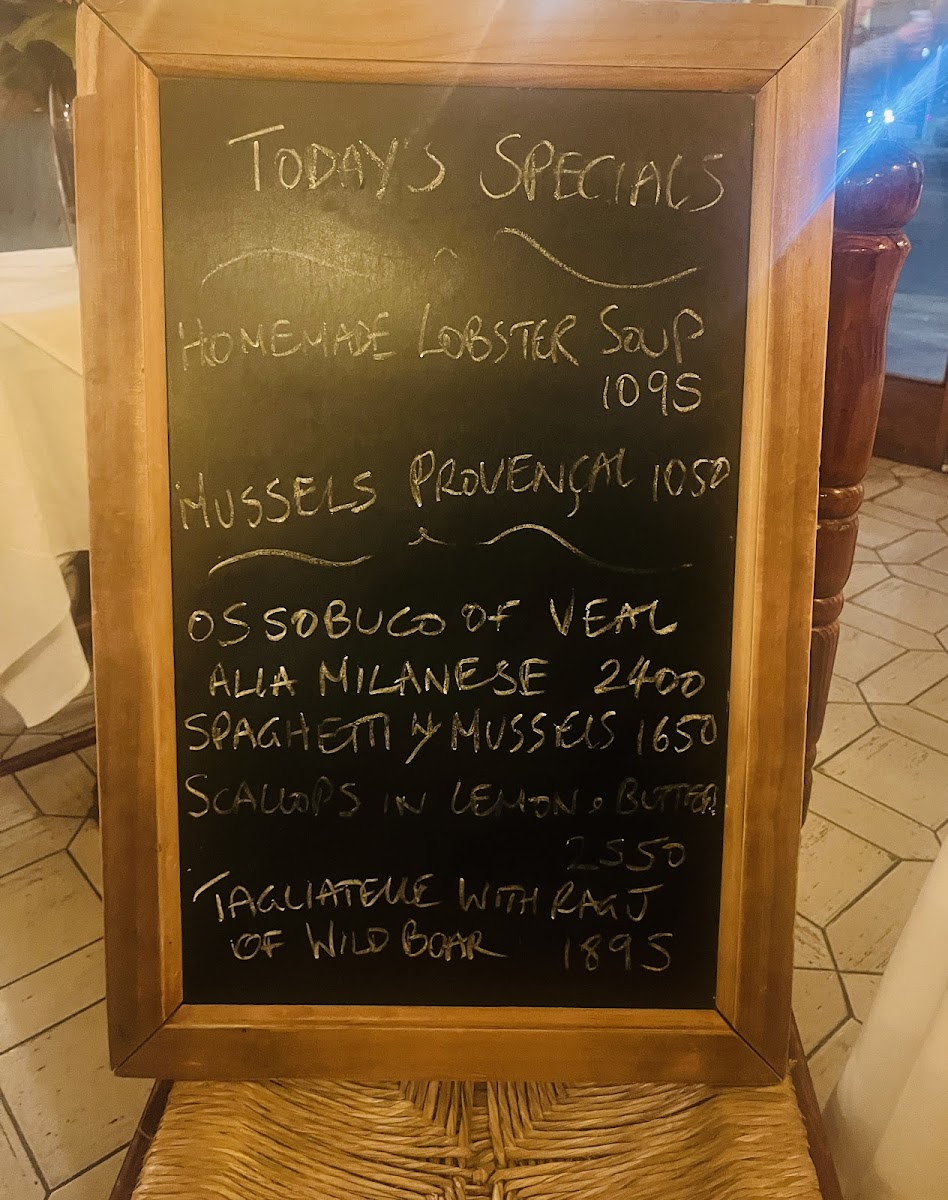 TODAY'S SPECIALS
HOMEMADE LOBSTER SOUP
1095
MUSSELS PROVENÇAL 1050
OSSOBUCO OF VEAL
ALLA MILANESE 2400
SPAGHETTI W MUSSELS 1650
SCALLOPS IN LEMON & BUTTER
2550
TAGLIATELLE WITH RAGU
OF WILD BOAR 1895